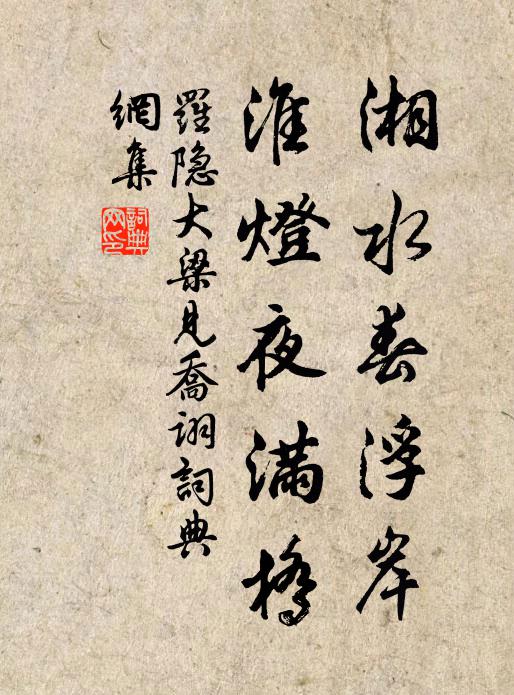 湘水春浮岸
淮燈夜滿橋
羅隐大梁見喬詡詞典
網集
詞典
网印